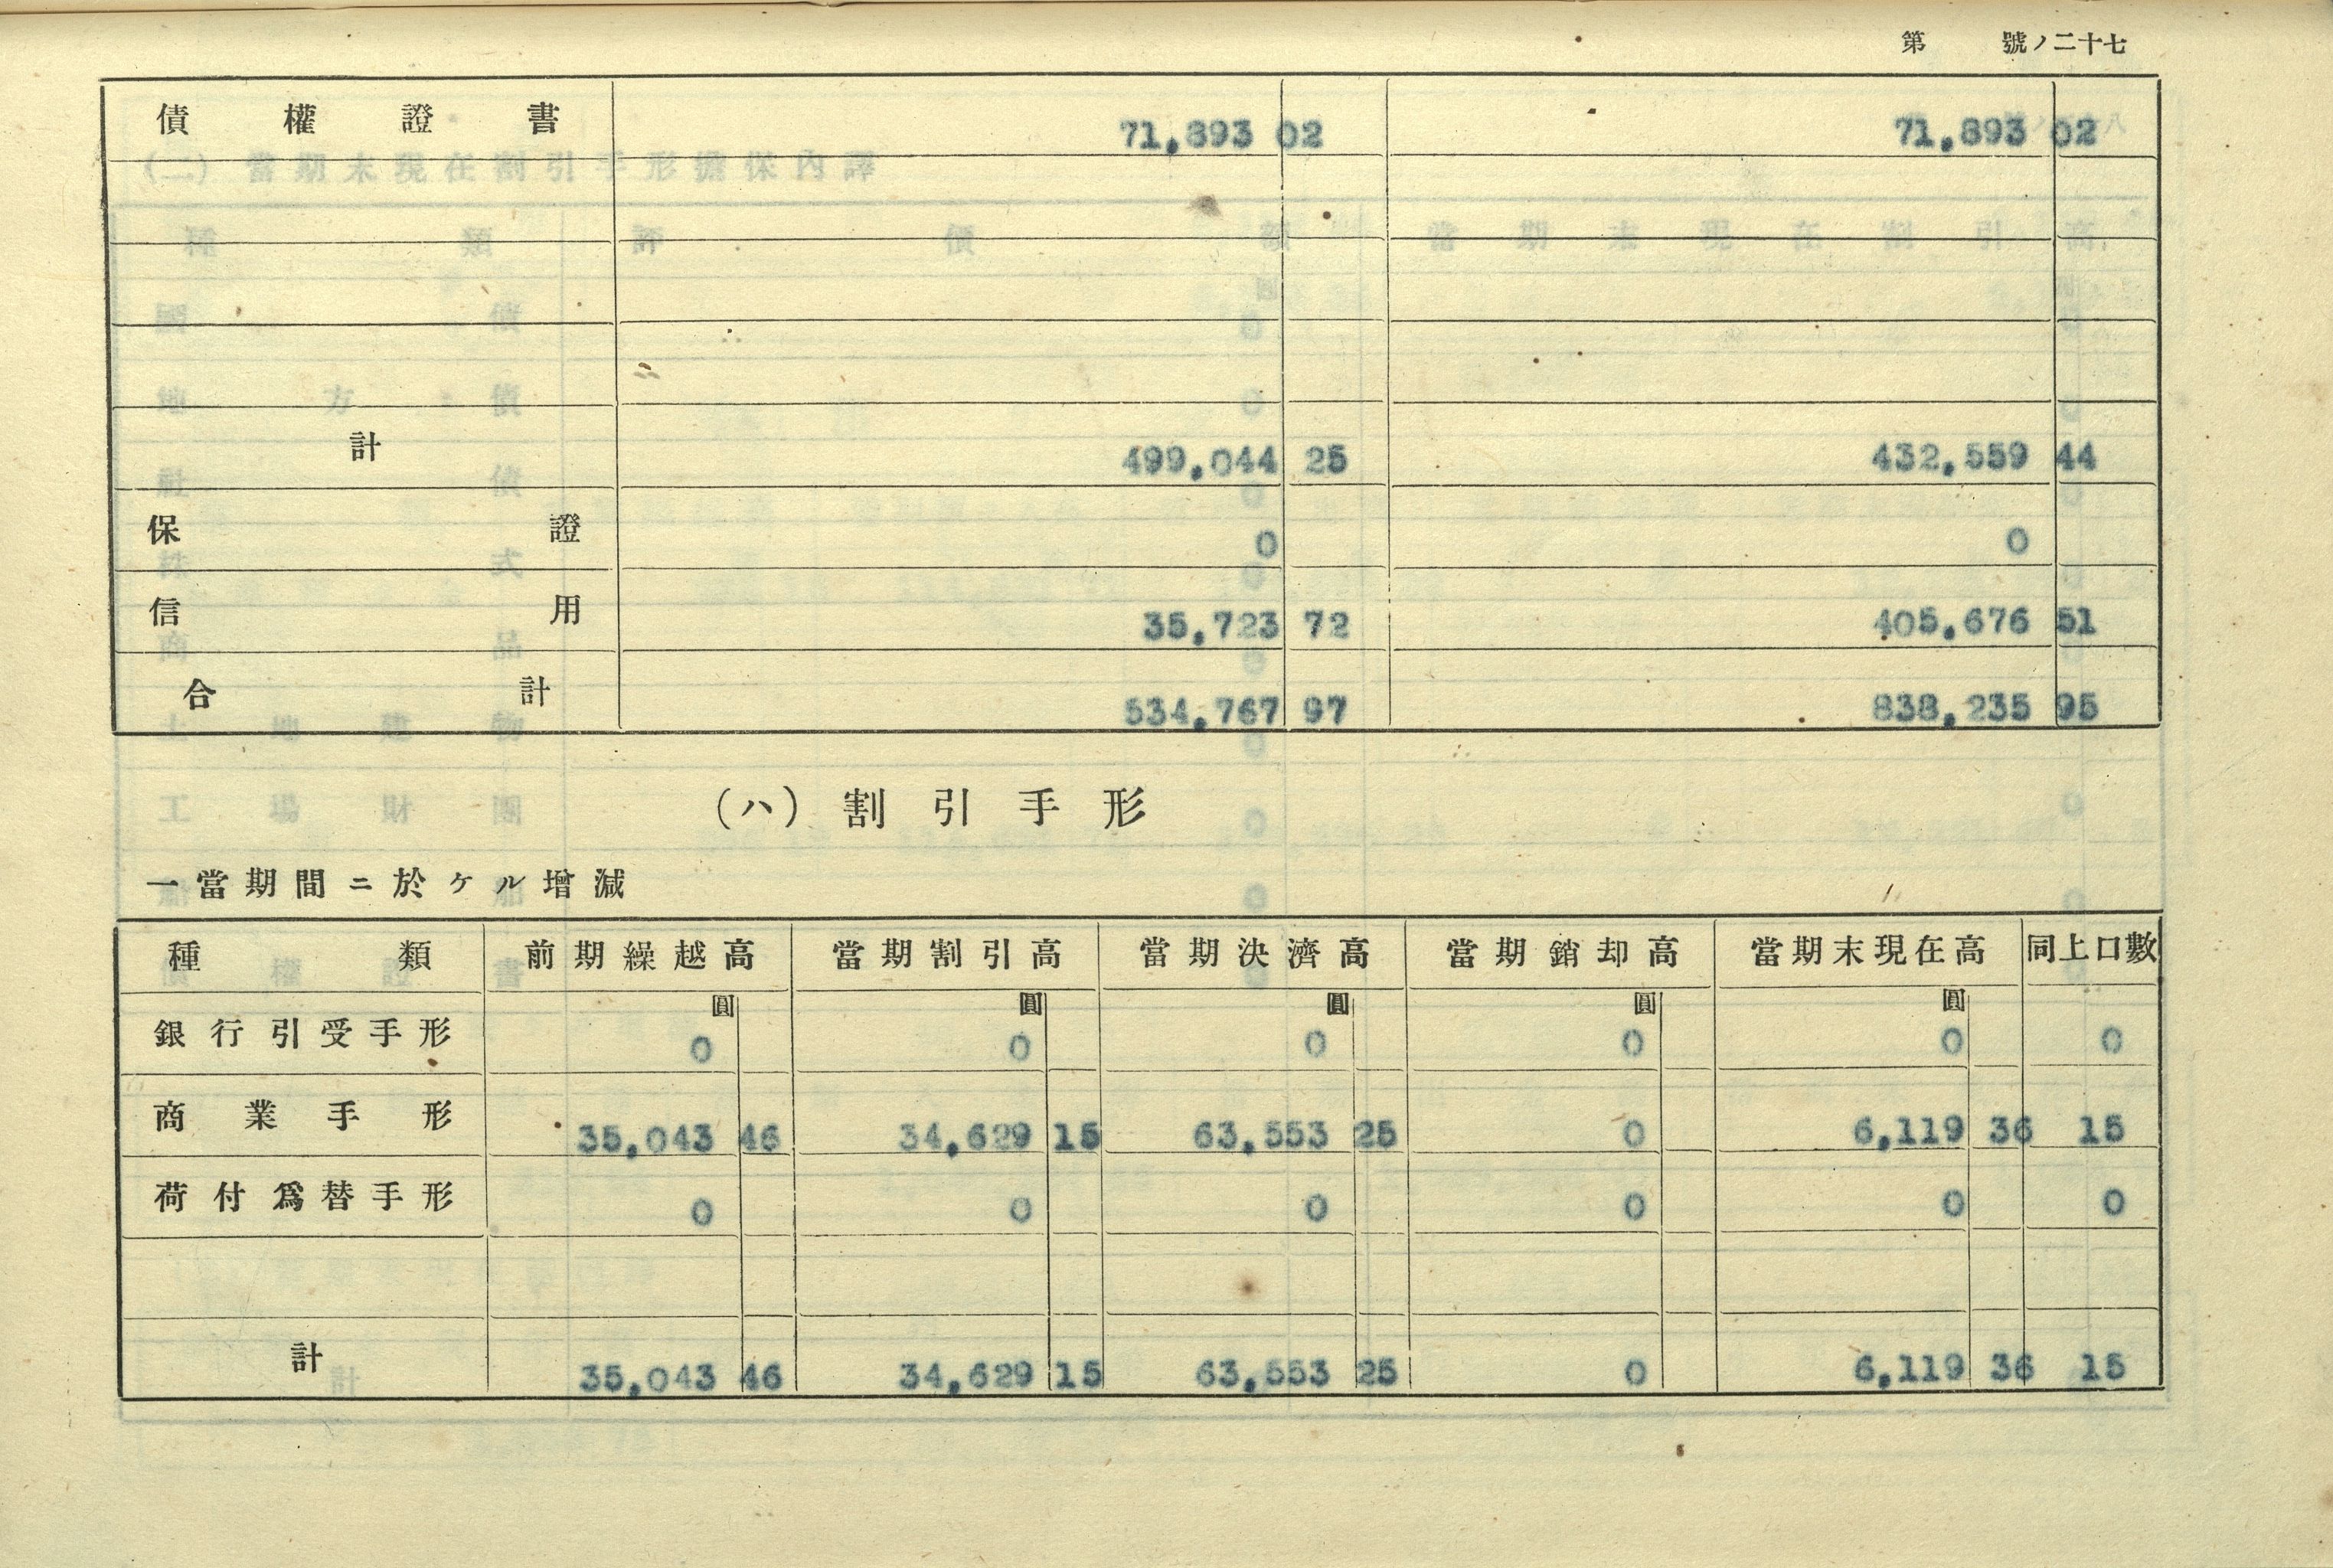 第 號ノ二十七
債權證書 71,893 02 71,893 02
計 499,044 25 432,559 44
保證 0 0
信用 35,723 72 405,676 51
合計 534,767 97 838,235 95
(ハ) 割引手形
一當期間ニ於ケル增減
種類 前期繰越高 當期割引高 當期決濟高 當期銷却高 當期末現在高 同上口數
圓 圓 圓 圓 圓
銀行引受手形 0 0 0 0 0 0
商業手形 35,043 46 34,629 15 63,553 25 0 6,119 36 15
荷付爲替手形 0 0 0 0 0 0
計 35,043 46 34,629 15 63,553 25 0 6,119 36 15